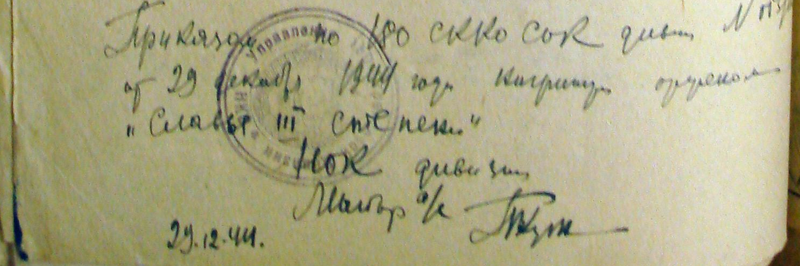 Приказом по 180 СККО СОК дивизии N
от 29 декабр 1944 года награжден орденом
"Славы III степени"
НОК дивизии
Майор а/с
29.12.44.
Управление